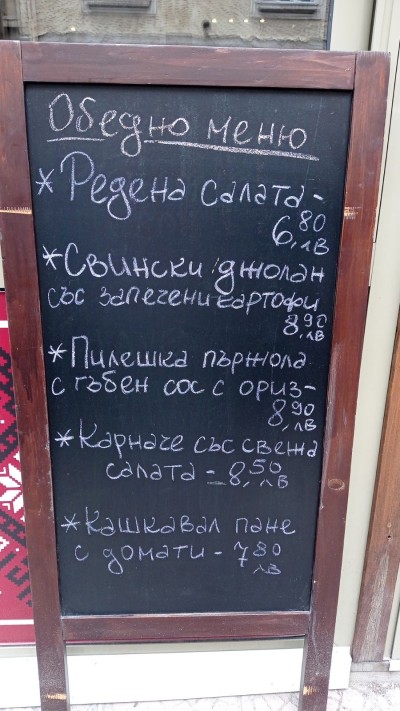 Обедно меню
* Редена салата -
6,80 лв
* Свински джолан
със запечени картофи
8,90 лв
* Пилешка пържола
с гъбен сос с ориз -
8,90 лв
* Карначе със свежа
салата - 8,50 лв
* Кашкавал пане
с домати - 7,80 лв